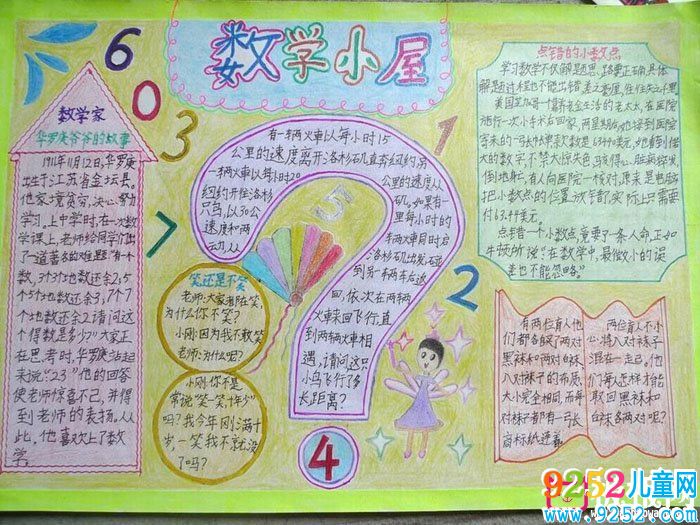 数学小屋
6
0
3
7
1
5
2
4
数学家
华罗庚爷爷的故事
1910年11月12日,华罗庚
出生于江苏省金坛县。
他家境贫穷,决心努力
学习,上中学时,在一次数
学课上,老师给同学们出
了一道著名的难题:"有一个
数,3个3个地数还余2;5个
5个地数还余3;7个7
个地数还余2,请问这
个得数是多少?"大家正
在思考时,华罗庚站起
来说:"23"他的回答
使老师惊喜不已,并得
到老师的表扬。从
此,他喜欢上了数
学。
有一辆火車以每小时15
公里的速度离开洛杉矶直奔纽约,另
一辆火車以每小时20
公里的速度从
纽约开往洛杉
矶。如果有一
只鸟,以30公
里每小时的
速度和两
辆火車同时启
洛杉矶出发,碰
到另一辆车后返
回,依次在两辆
火車来回飞行,直
到两辆火車相
遇,请问这只
小鸟飞行了多
长距离?
笑还是不笑
老师:大家都在笑,
为什么你不笑?
小刚:因为我不敢笑
老师:为什么呢?
小刚:你不是
常说"笑一笑,十年少"
吗?我今年刚满十
岁,一笑我不就没
了吗?
点错的小数点
学习数学不仅解题思路要正确,具体
解题过程也不能出错,差之毫厘,往往失之千里
美国芝加哥一个靠养老金生活的老太太,在医院
进行一次小手术后回家,两星期后,她接到医院
寄来的一张帐单,款数是63440美元,她看到偌
大的数字,不禁大惊失色,骇得心脏病猝发,
倒地身亡,有人向医院一核对,原来是电脑
把小数点的位置放错了,实际上只需要
付63.44美元。
点错一个小数点,竟要了一条人命,正如
牛顿所说:"在数学中,最微小的误
差也不能忽略。"
有两位盲人,他
们都各自买了两对
黑袜和两对白袜,
八对袜子的布质、
大小完全相同,而每
对袜子都有一张
商标纸连着。
两位盲人不小
心将八对袜子
混在一起。他
们每人怎样才能
取回黑袜和
白袜各两对呢?
9252儿童网
www.9252.com